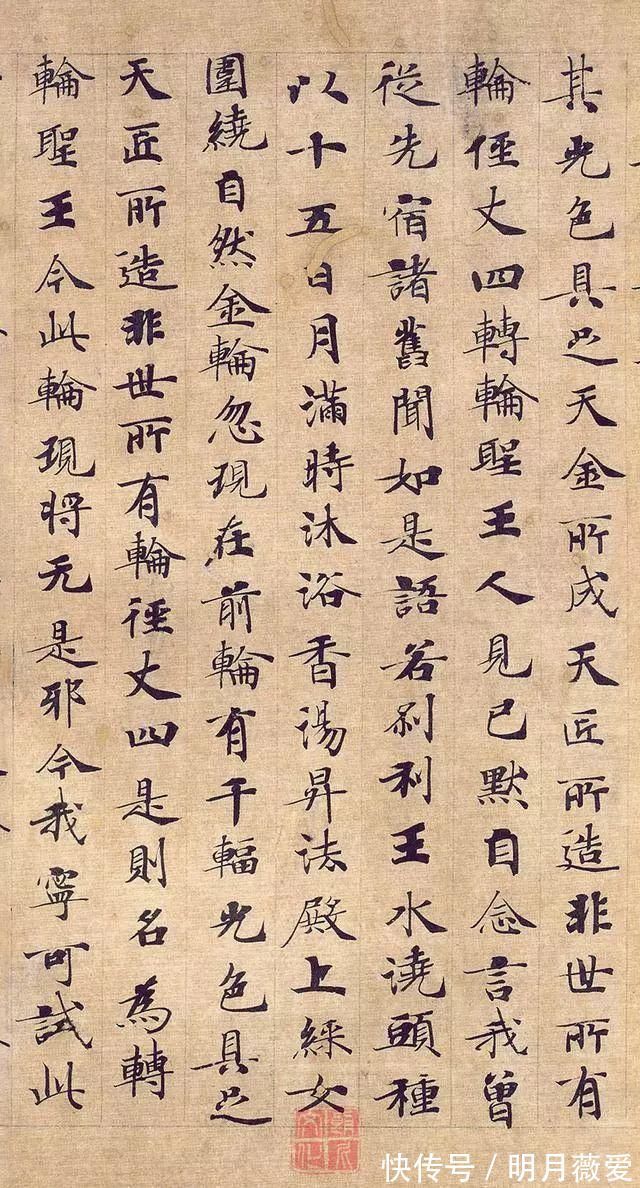 其光色具足天金所成天匠所造非世所有
輪俓丈四轉輪聖王人見已默自念言我曾
從先宿諸舊聞如是語若剎利王水澆頭種
以十五日月滿時沐浴香湯昇法殿上綵女
圍繞自然金輪忽現在前輪有千輻光色具足
天匠所造非世所有輪徑丈四是則名為轉
輪聖王今此輪現將无是邪今我寧可試此
快传号／明月薇爱